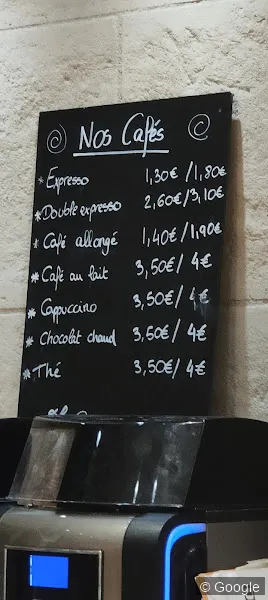 Nos Cafés
* Expresso 1,30€ / 1,80€
* Double expresso 2,60€ / 3,10€
* Café allongé 1,40€ / 1,90€
* Café au lait 3,50€ / 4€
* Cappuccino 3,50€ / 4€
* Chocolat chaud 3,50€ / 4€
* Thé 3,50€ / 4€
© Google